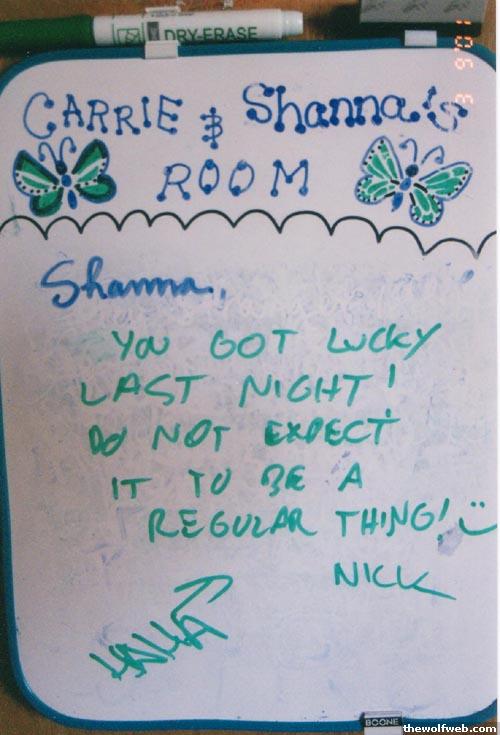 DRY-ERASE
3 9'01
CARRIE & Shanna's
ROOM
Shanna,
YOU GOT LUCKY
LAST NIGHT!
DO NOT EXPECT
IT TO BE A
REGULAR THING! :)
NICK
HAHA
BOONE
thewolfweb.com